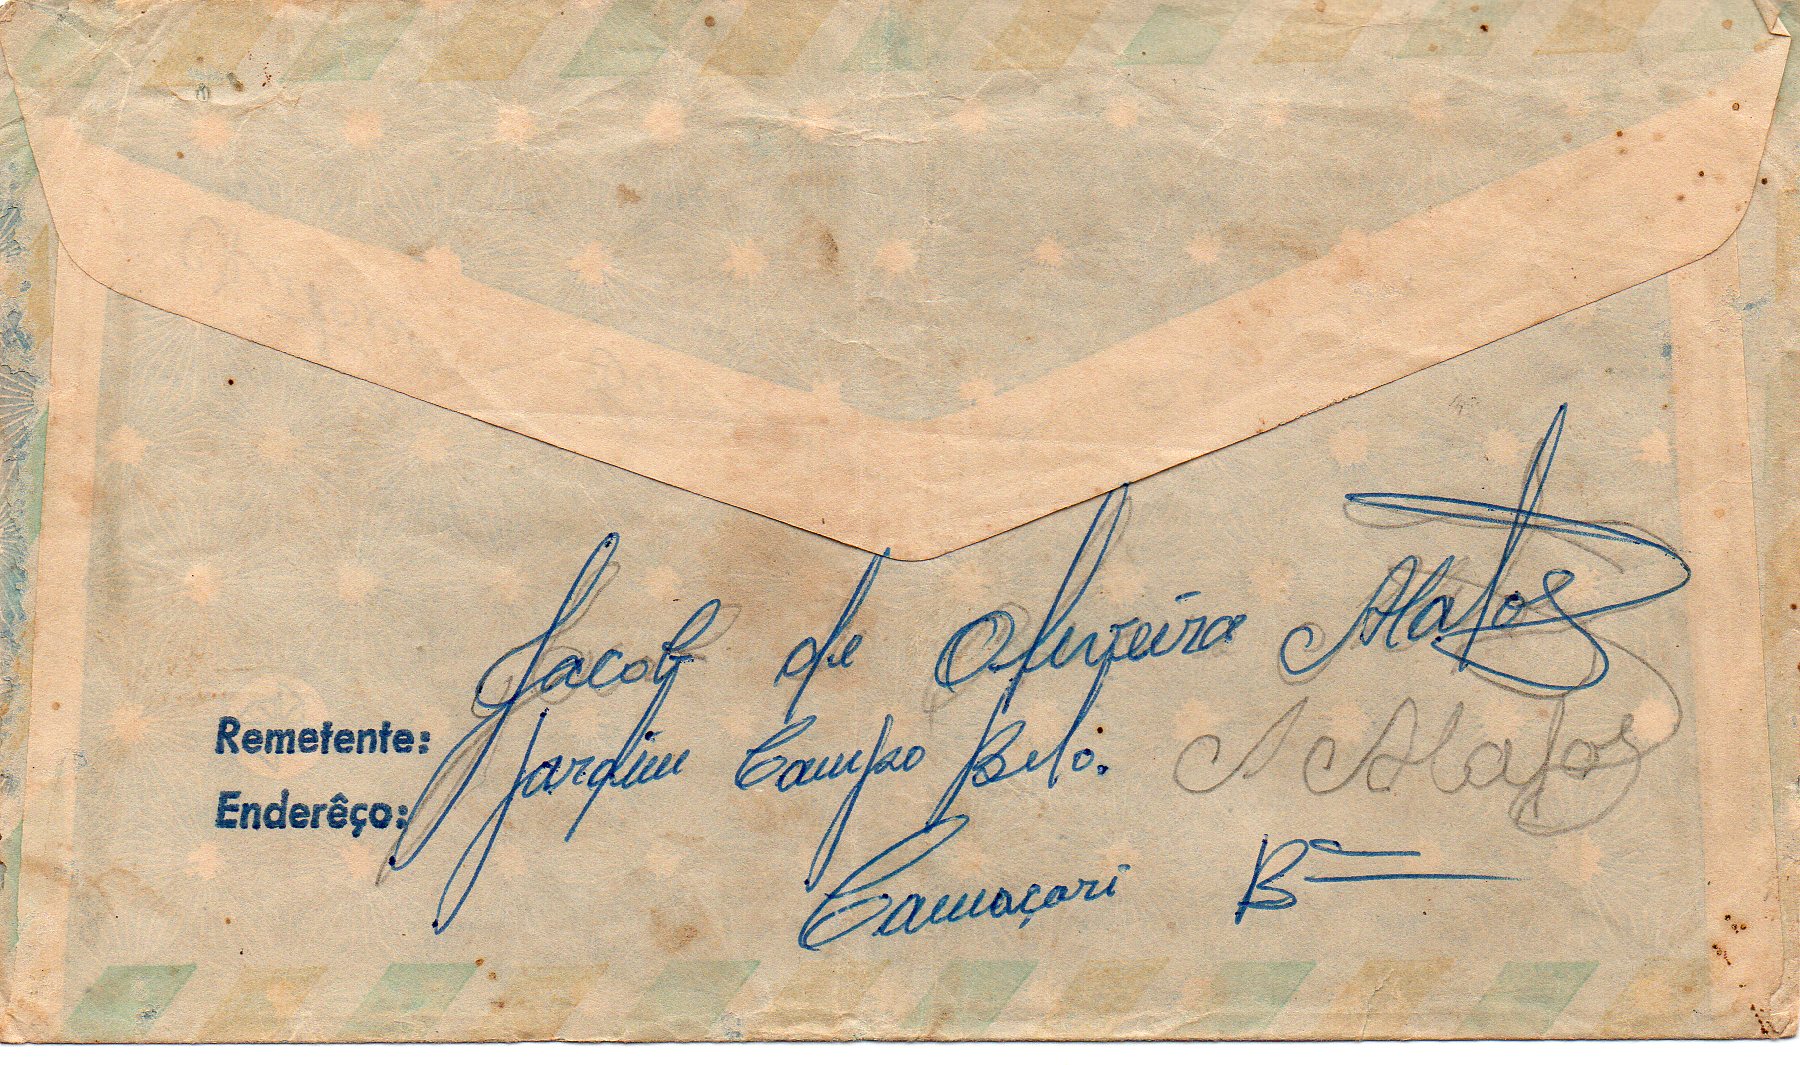 Jacob de Oliveira Matos
Remetente: Jardim Campo Belo. Matos
Enderêço:
Camaçari Ba